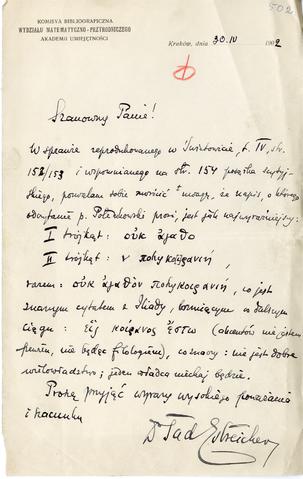 502
KOMISYA BIBLJOGRAFICZNA
WYDZIAŁU MATEMATYCZNO-PRZYRODNICZEGO
AKADEMII UMIEJĘTNOŚCI
Kraków, dnia 30.IV 1902
Szanowny Panie!
W sprawie reprodukowanego w Światowicie, t. IV, str.
152/153 i wspomnianego na str. 154 posążka
pozwalam sobie zwrócić uwagę, że napis, o którego
odczytanie p. prosi, jest jak najwyraźniejszy:
I trójkąt: οὐκ ἀγαθο
II trójkąt: ν πολυκοιρανιη
razem: οὐκ ἀγαθὸν πολυκοιρανιη, co jest
znanym cytatem z Iliady, brzmiącym w dalszym
ciągu: εἷς κοίρανος ἔστω (akcentów nie jestem
pewien, nie będąc filologiem), co znaczy: nie jest dobre
wielowładztwo; jeden władca niechaj będzie.
Proszę przyjąć wyrazy wysokiego poważania
i szacunku
Dr Tad Estreicher